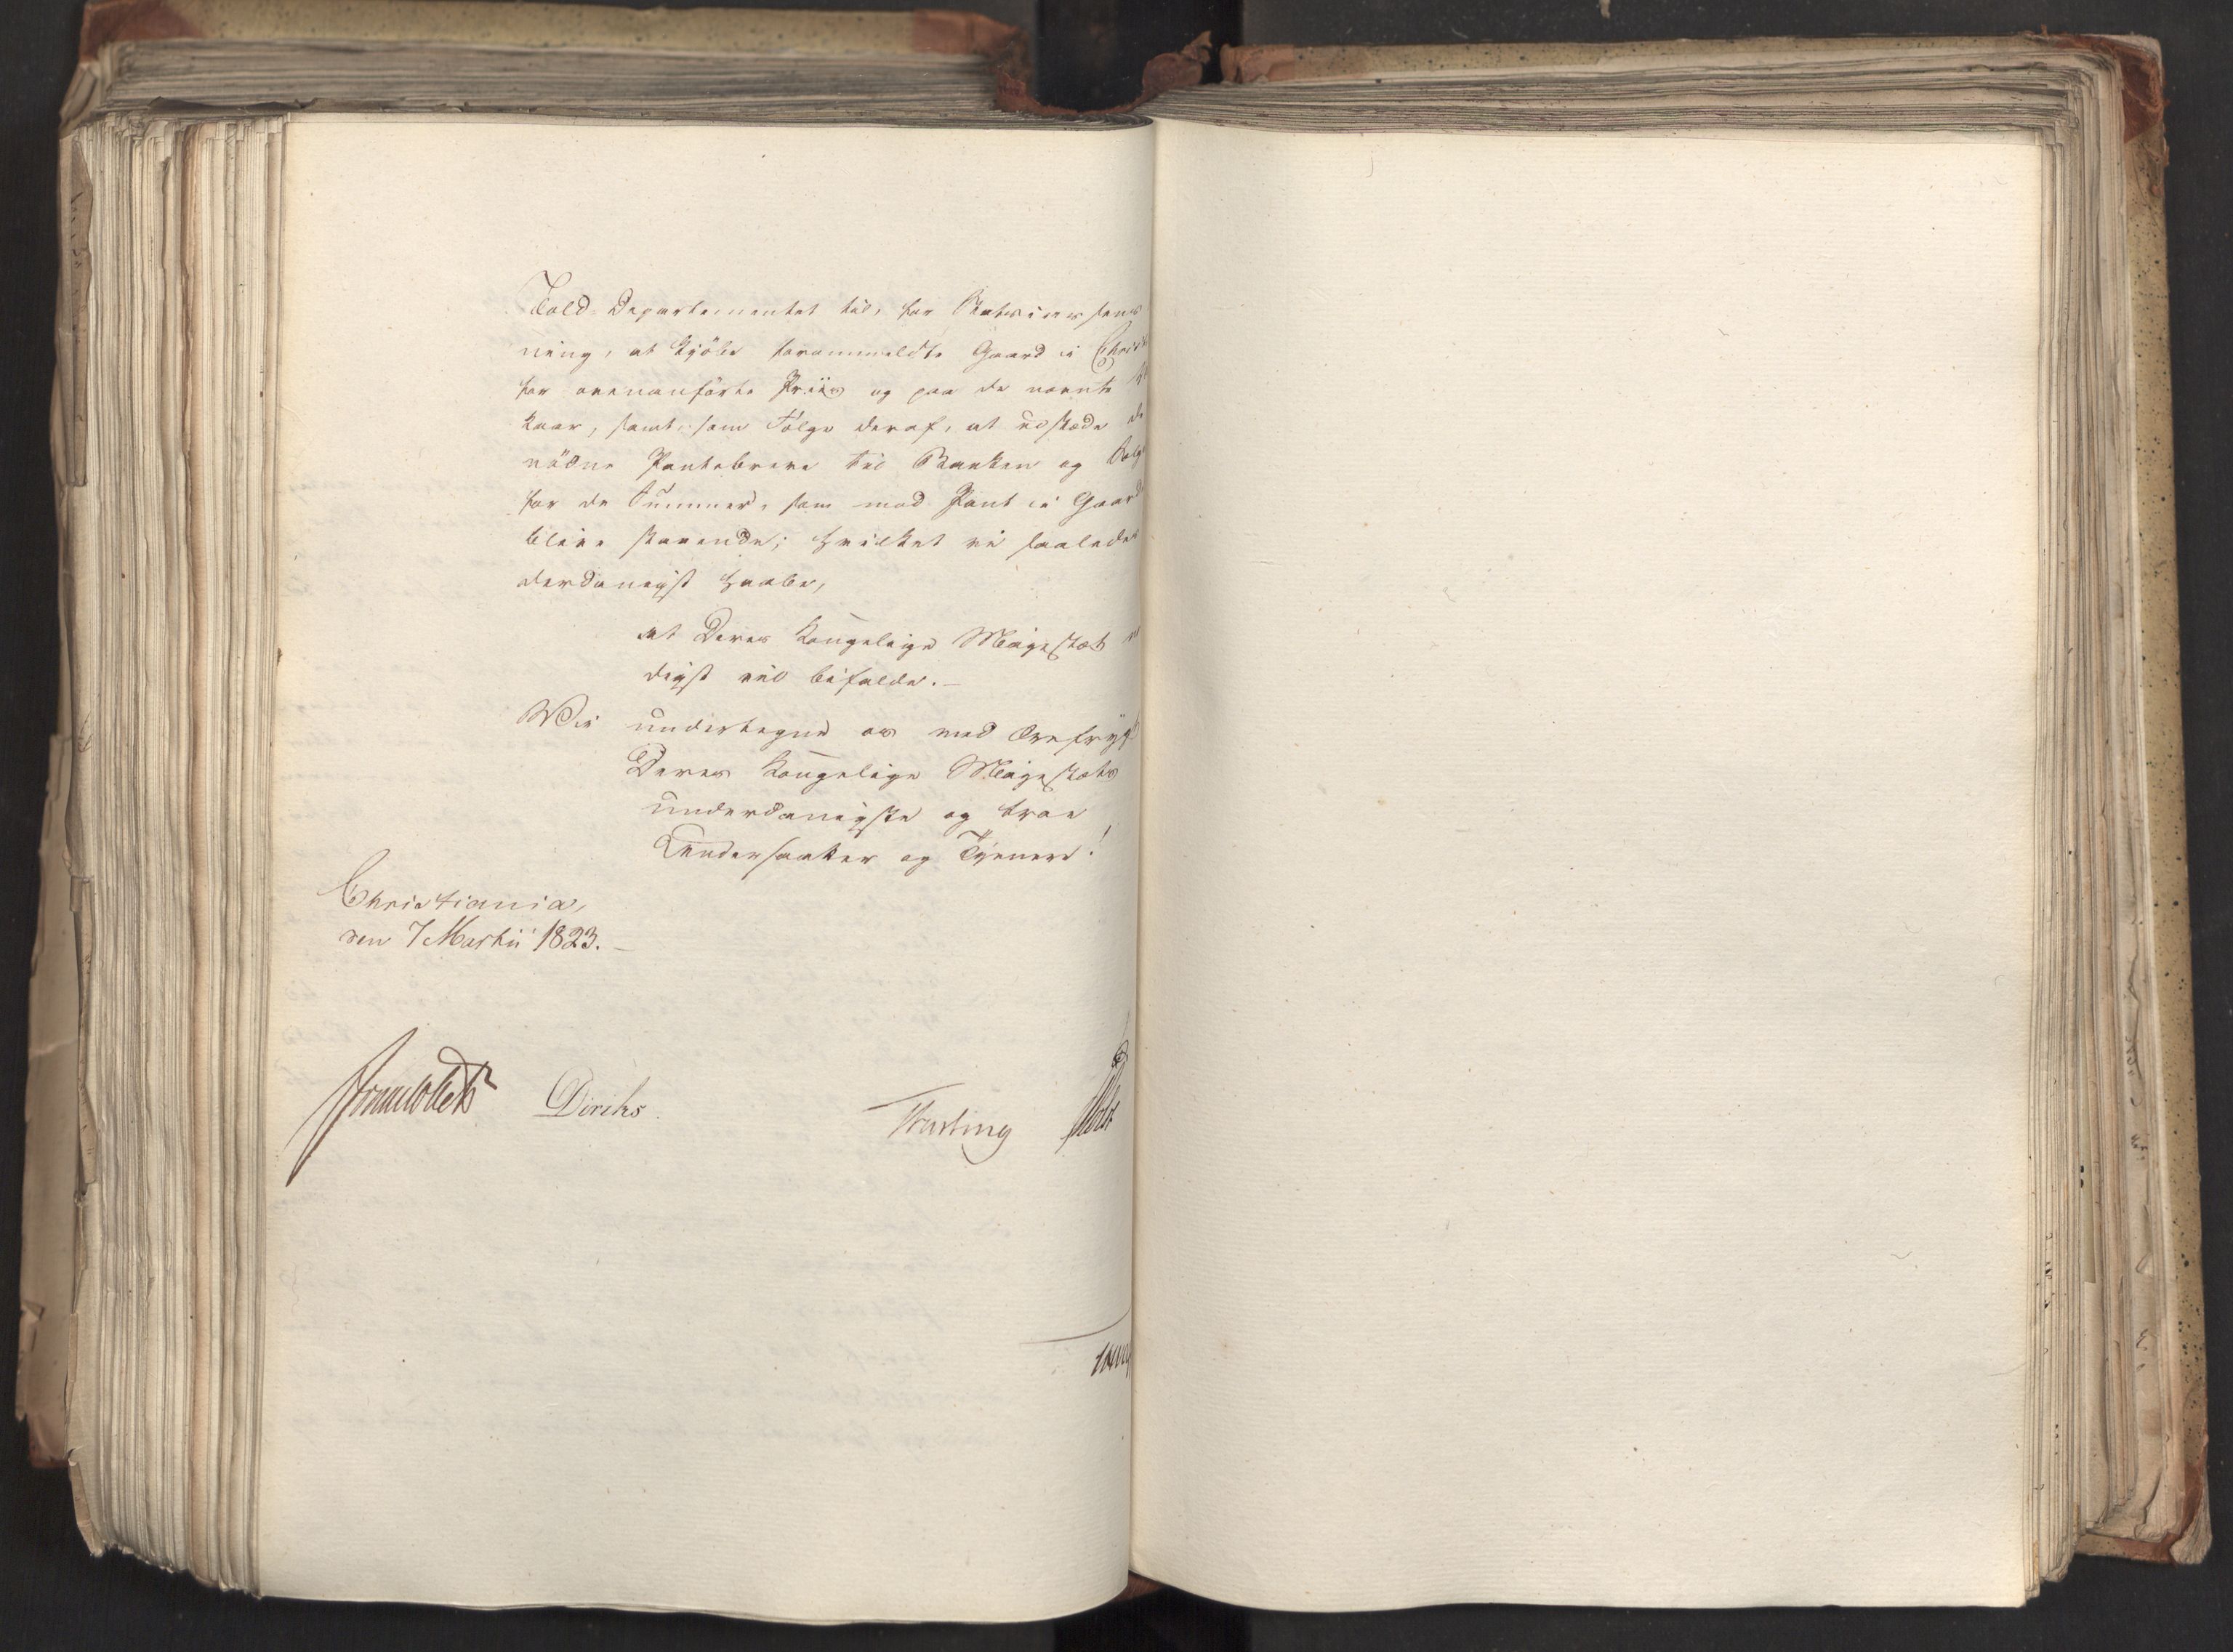 Told-Departementet til, for Statens
ning, at kjöbe forommeldte Gaard i Christi
for ovenanförte Priis og paa de nævnte
kaar, samt, som Fölge deraf, at udstæde de
nödne Pantebreve til Banken og
for de Summer, som mod Pant i Gaard
blive staaende; hvilket vi saaledes
derdanigst haabe,
at Deres Kongelige Majestæt
digst vil bifalde.-
Vi undertegne os med Ærefrygt
Deres Kongelige Majestæts
underdanigste og troe
Undersaatter og Tjenere!
Christiania,
den 7 Martii 1823.-
Diriks
Krefting Holst